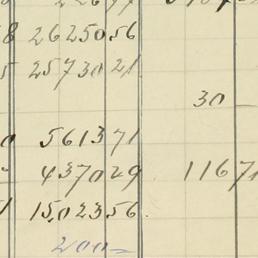 2625056
2573021
30
561371
437029 1167
15,02356
200=